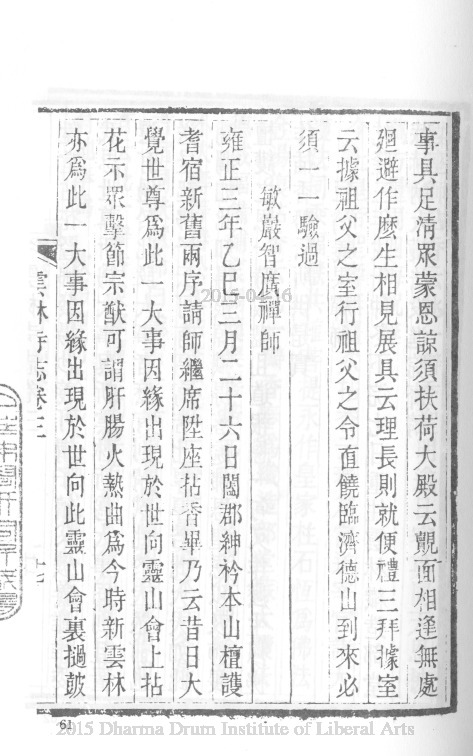 事具足清眾蒙恩諒須扶荷大殿云覿面相逢無處
廻避作麽生相見展具云理長則就便禮三拜據室
云據祖父之室行祖父之令直饒臨濟德山到來必
須一一驗過
敏巖智廣禪師
雍正三年乙巳三月二十六日闔郡紳衿本山檀護
耆宿新舊兩序請師繼席陞座拈香畢乃云昔日大
覺世尊爲此一大事因緣出現於世向靈山會上拈
花示眾擊節宗猷可謂肝腸火熱曲爲今時新雲林
亦爲此一大事因緣出現於世向此靈山會裏撾鼓
雲林寺志卷三
七
2015-04-16
61
2015 Dharma Drum Institute of Liberal Arts